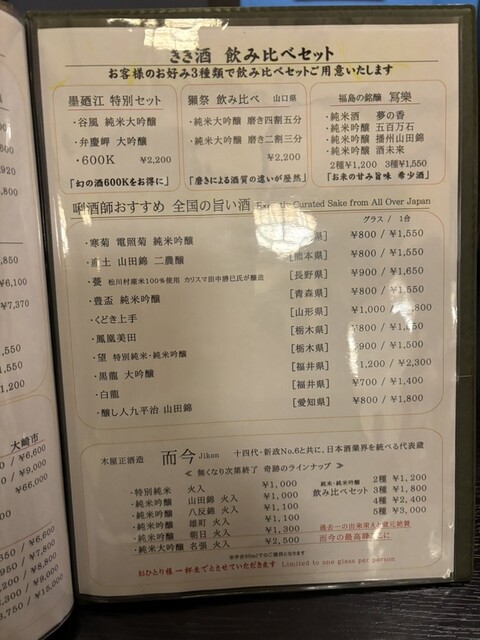 きき酒 飲み比べセット
お客様のお好み3種類で飲み比べセットご用意いたします
墨廼江 特別セット
・谷風 純米大吟醸
・弁慶岬 大吟醸
・600K ¥2,200
「幻の酒600Kをお得に」
獺祭 飲み比べ 山口県
・純米大吟醸 磨き四割五分
・純米大吟醸 磨き二割三分
¥2,200
「磨きによる酒質の違いが歴然」
福島の銘醸 冩樂
・純米酒 夢の香
・純米吟醸 五百万石
・純米吟醸 播州山田錦
・純米吟醸 酒未来
2種¥1,200 3種¥1,550
「お米の甘み旨味 希少酒」
唎酒師おすすめ 全国の旨い酒 Curated Sake from All Over Japan
グラス / 1合
・寒菊 電照菊 純米吟醸 県] ¥800 / ¥1,550
土 山田錦 二農醸 [熊本県] ¥800 / ¥1,550
松川村産米100%使用 カリスマ田中勝巳氏が醸造 [長野県] ¥900 / ¥1,650
・豊盃 純米吟醸 [青森県] ¥800 / ¥1,550
・くどき上手 [山形県] ¥1,000 / 800
・鳳凰美田 [栃木県] ¥800 / ¥1,550
・望 特別純米・純米吟醸 [栃木県] ¥900 / ¥1,500
・黒龍 大吟醸 [福井県] 1,200 / ¥2,300
・白龍 [福井県] ¥700 / ¥1,400
・醸し人九平治 山田錦 [愛知県] ¥800 / ¥1,800
木屋正酒造 而今 Jikon 十四代・新政No.6と共に、日本酒業界を統べる代表蔵
≪ 無くなり次第終了 奇跡のラインナップ ≫
・特別純米 火入 ¥1,000
・純米吟醸 山田錦 火入 ¥1,000
・純米吟醸 八反錦 火入 ¥1,100
・純米吟醸 雄町 火入 ¥1,100
・純米吟醸 朝日 火入 ¥1,300
・純米大吟醸 名張 火入 ¥2,500
純米・純米吟醸
飲み比べセット
2種 ¥1,200
3種 ¥1,800
4種 ¥2,400
5種 ¥3,000
過去一の出来栄えと蔵元絶賛
而今の最高峰ここに
おひとり様 一杯までとさせていただきます Limited to one glass per person
大崎市